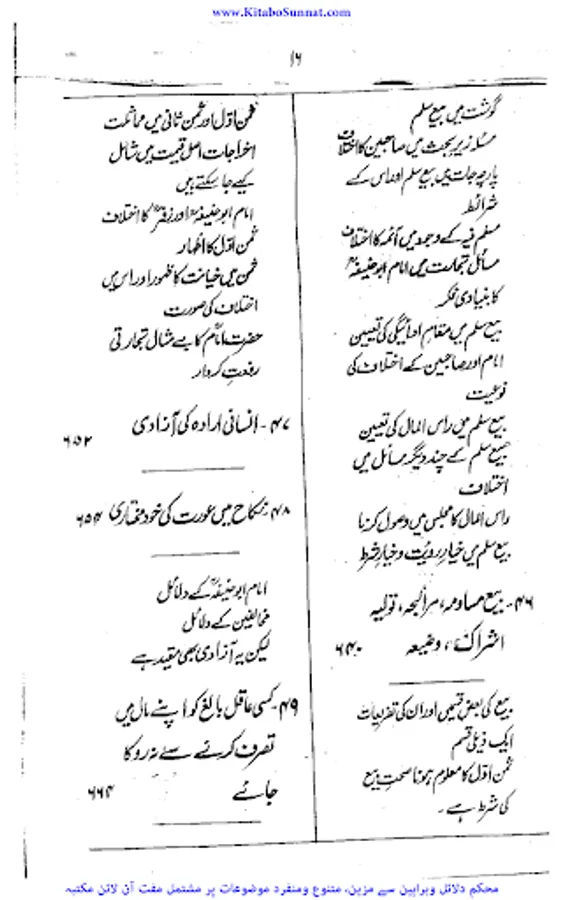 www.KitaboSunnat.com
۱۶
گوشت میں بیع سلم
مسئلہ زیر بحث میں صاحبین کا اختلاف
پارچہ جات میں بیع سلم اور اس کے
شرائط
مسلم فیہ کے وجود میں ائمہ کا اختلاف
مسائل تجارت میں امام ابو حنیفہؒ
کا بنیادی فکر
بیع سلم میں مقام ادائیگی کی تعیین
امام اور صاحبین کے اختلاف کی
نوعیت
بیع سلم میں راس المال کی تعیین
بیع سلم کے چند دیگر مسائل میں
اختلاف
راس المال کا مجلس میں وصول کرنا
بیع سلم میں خیار رویت و خیار شرط
۴۶۔ بیع مساومہ، مرابحہ، تولیہ
اشراک، وضیعہ ۶۴۰
بیع کی بعض قسمیں اور ان کی تفریعات
ایک ذیلی قسم
ثمن اوّل کا معلوم ہونا صحتِ بیع
کی شرط ہے۔
ثمن اوّل اور ثمن ثانی میں مماثلت
اخراجات اصل قیمت میں شامل
کیے جا سکتے ہیں
امام ابو حنیفہؒ اور زفرؒ کا اختلاف
ثمن اوّل کا اظہار
ثمن میں خیانت کا ظہور اور اس میں
اختلاف کی صورت
حضرت امامؒ کا بے مثال تجارتی
رفعتِ کردار
۴۷۔ انسانی ارادہ کی آزادی ۶۵۲
۴۸۔ نکاح میں عورت کی خود مختاری ۶۵۴
امام ابو حنیفہؒ کے دلائل
مخالفین کے دلائل
لیکن یہ آزادی بھی مقید ہے
۴۹۔ کسی عاقل بالغ کو اپنے مال میں
تصرف کرنے سے نہ روکا
جائے ۶۶۴
محکم دلائل وبراہین سے مزین، متنوع ومنفرد موضوعات پر مشتمل مفت آن لائن مکتبہ